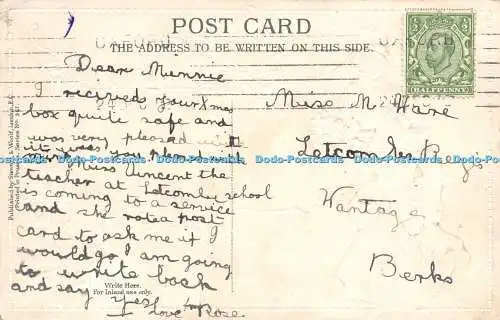 POST CARD
THE ADDRESS TO BE WRITTEN ON THIS SIDE.
HALFPENNY
Dear Minnie
I received your Xmas
box quite safe and
was very pleased
it was you
Miss Vincent the
teacher at Letcombe school
is coming to a service
and she rote a post
card to ask me if I
would go I am going
to write back
and say yes
love from Rose
Write Here.
For Inland use only.
Miss M. Hare
Letcombe Regis
Wantage
Berks
Dodo-Postcards Dodo-Postcards Dodo-Postcards Dodo-Postcards Dodo-Postcards